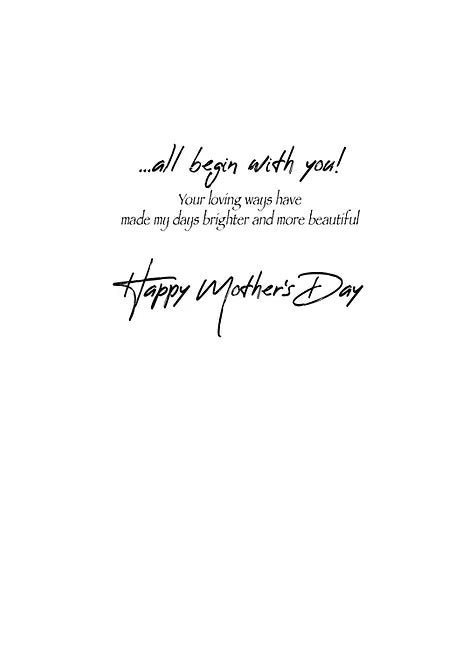 ...all begin with you!
Your loving ways have
made my days brighter and more beautiful
Happy Mother's Day